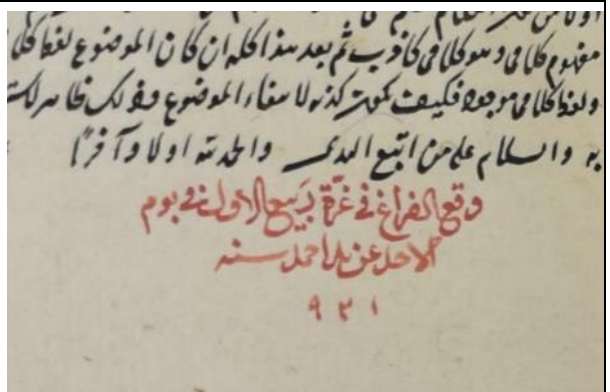 مفهوم كلامى وهو كلامى كاذب ثم بعد هذا كله ان كان الموضوع لفظ كلا
ولفظ كلامى موجود فكيف كذبه لانتفاء الموضوع وذلك ظاهر
به والسلام على من اتبع الهدى والحمد لله اولا وآخرا
وقع الفراغ فى غرّة ربيع الاول فى يوم
الاحد عن يد احمد سنه
٩٢١